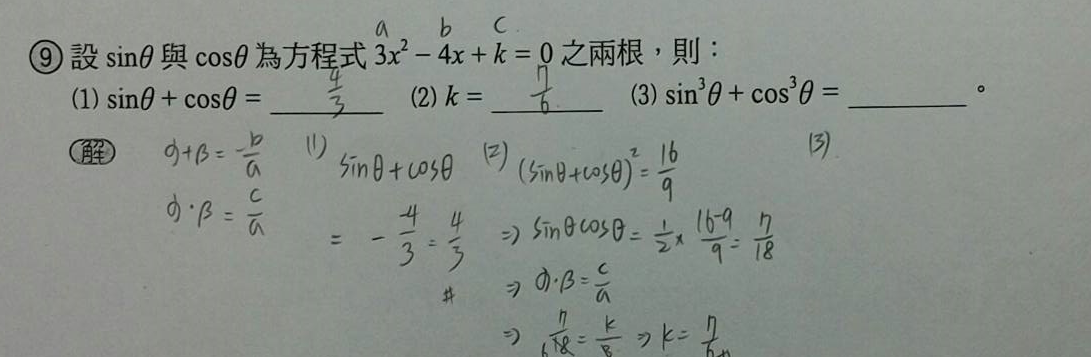 a b c
⑨ 設 sinθ 與 cosθ 為方程式 3x² − 4x + k = 0 之兩根，則：
(1) sinθ + cosθ = 4/3 (2) k = 7/6 (3) sin³θ + cos³θ = ________ 。
解 α+β = -b/a (1) sinθ+cosθ (2) (sinθ+cosθ)² = 16/9 (3)
α·β = c/a = - -4/3 = 4/3 ⇒ sinθcosθ = 1/2 × 16-9/9 = 7/18
# ⇒ α·β = c/a
⇒ 7/18 = k/3 ⇒ k = 7/6